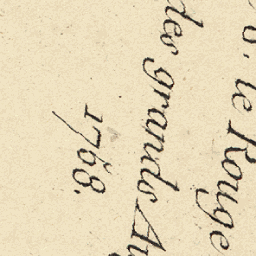 le Rouge
des grands
1768.